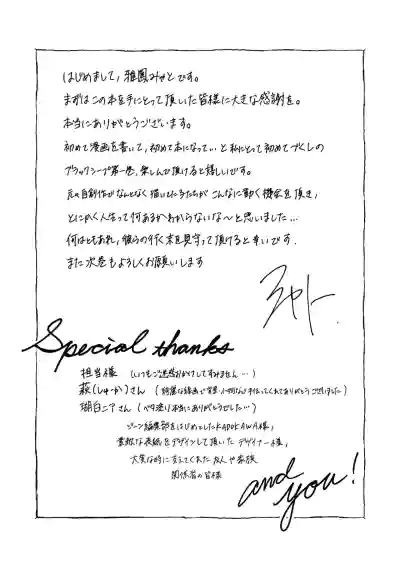 はじめまして，雅鳳みやとです。
まずはこの本を手にとって頂いた皆様に大きな感謝を。
本当にありがとうございます。
初めて漫画を書いて，初めて本になってい…と私にとって初めてづくしの
ブラックシープ第一巻，楽しんで頂けると嬉しいです。
元の自創作でなんとなく描いてた子たちが こんなに動く機会を頂き，
とにかく人生って何あるかわからないな〜と思いました…
何はともあれ，彼らの行く末を見守って頂けると幸いです．
また次巻もよろしくお願いします
Special thanks
担当様 (いつもご迷惑おかけしてすみません…)
萩(しゅか)さん (綺麗な線画で背景・小物など手伝ってくれてありがとうございました)
瑚白ニアさん (ベタ塗り本当にありがとうでした…)
ジーン編集部をはじめとしたKADOKAWA様，
素敵な表紙をデザインして頂いた デザイナー様，
大変な時に支えてくれた友人や家族
関係者の皆様
and
you!